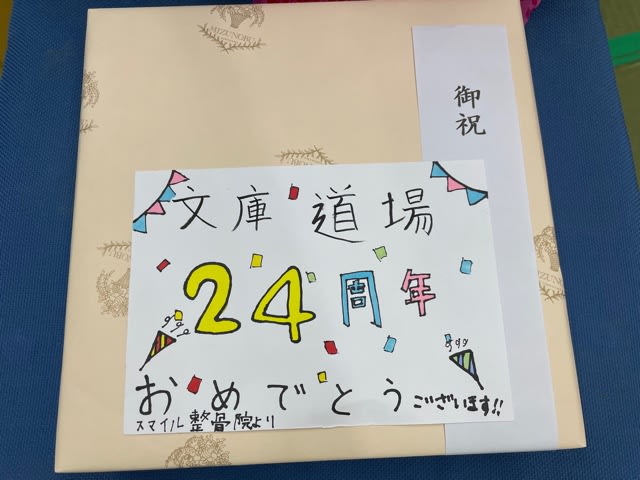 MIZUNOBU
御祝
文庫道場
24周年
おめでとうございます!!
スマイル整骨院より